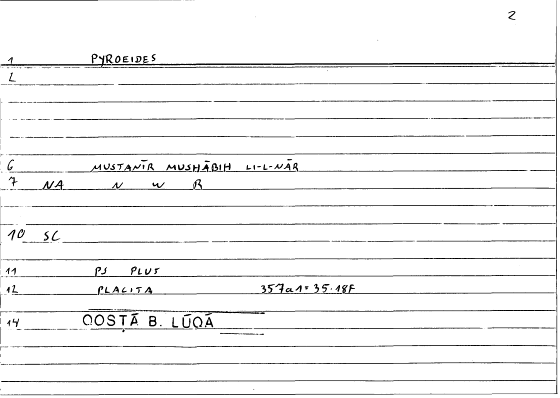 2
1 PYROEIDES
2
6 MUSTANĪR MUSHĀBIH LI-L-NĀR
7 NA N W R
10 SC
11 PS PLUT
12 PLACITA 357a1= 35.18F
14 QOSṬĀ B. LŪQĀ